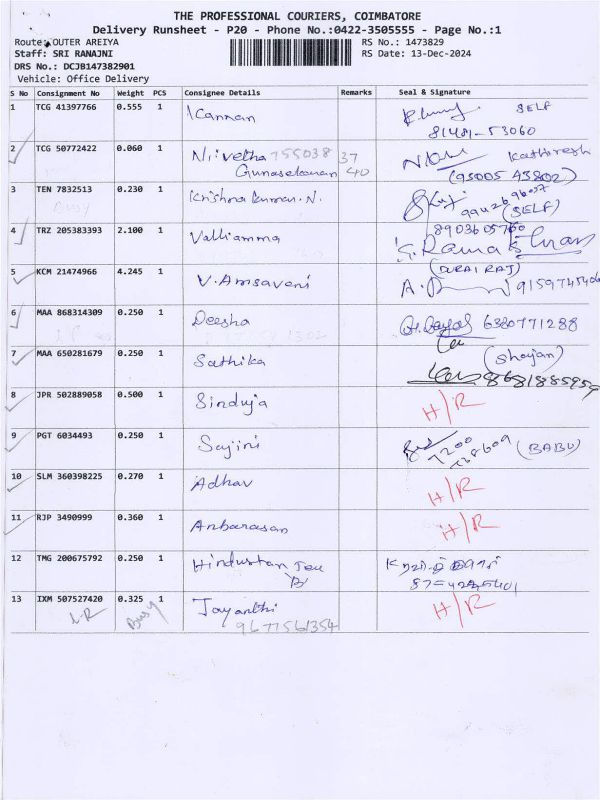 THE PROFESSIONAL COURIERS, COIMBATORE
Delivery Runsheet - P20 - Phone No.:0422-3505555 - Page No.:1
Route: OUTER AREIYA RS No.: 1473829
Staff: SRI RANAJNI RS Date: 13-Dec-2024
DRS No.: DCJB147382901
Vehicle: Office Delivery
S No Consignment No Weight PCS Consignee Details Remarks Seal & Signature
1 TCG 41397766 0.555 1 Kannan SELF
81481-53060
2 TCG 50772422 0.060 1 Nivetha 755038 37 Kathiresh
Gunasekaran 40 (95005 45802)
3 TEN 7832513 0.230 1 Krishna kumar. N. 99426 96057
Busy (SELF)
4 TRZ 205383393 2.100 1 Valliamma 8903605760
5 KCM 21474966 4.245 1 V. Amsaveni (DURAI RAJ)
9159745406
6 MAA 868314309 0.250 1 Deesha 6380771288
7 MAA 650281679 0.250 1 Sathika (Shajan)
8681885959
8 JPR 502889058 0.500 1 Sinduja H/R
9 PGT 6034493 0.250 1 Sajini 7200 (BABU)
728609
10 SLM 360398225 0.270 1 Adhav H/R
11 RJP 3490999 0.360 1 Anbarasan H/R
12 TMG 200675792 0.250 1 Hindustan
13 IXM 507527420 0.325 1 Jayanthi H/R
Busy 9677561354